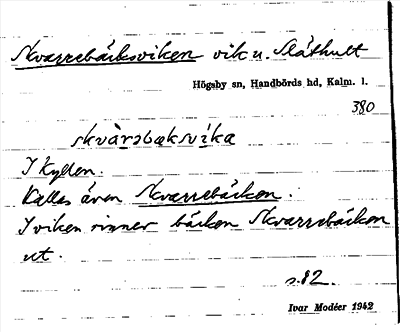 Skvarrebäcksviken vik u. Slåthult
Högsby sn, Handbörds hd, Kalm. l.
380
skvàrəbæksvika
I Kyllen.
Kallas även Skvarrebäcken.
I viken rinner bäcken Skvarrebäcken
ut.
s. 82.
Ivar Modéer 1942